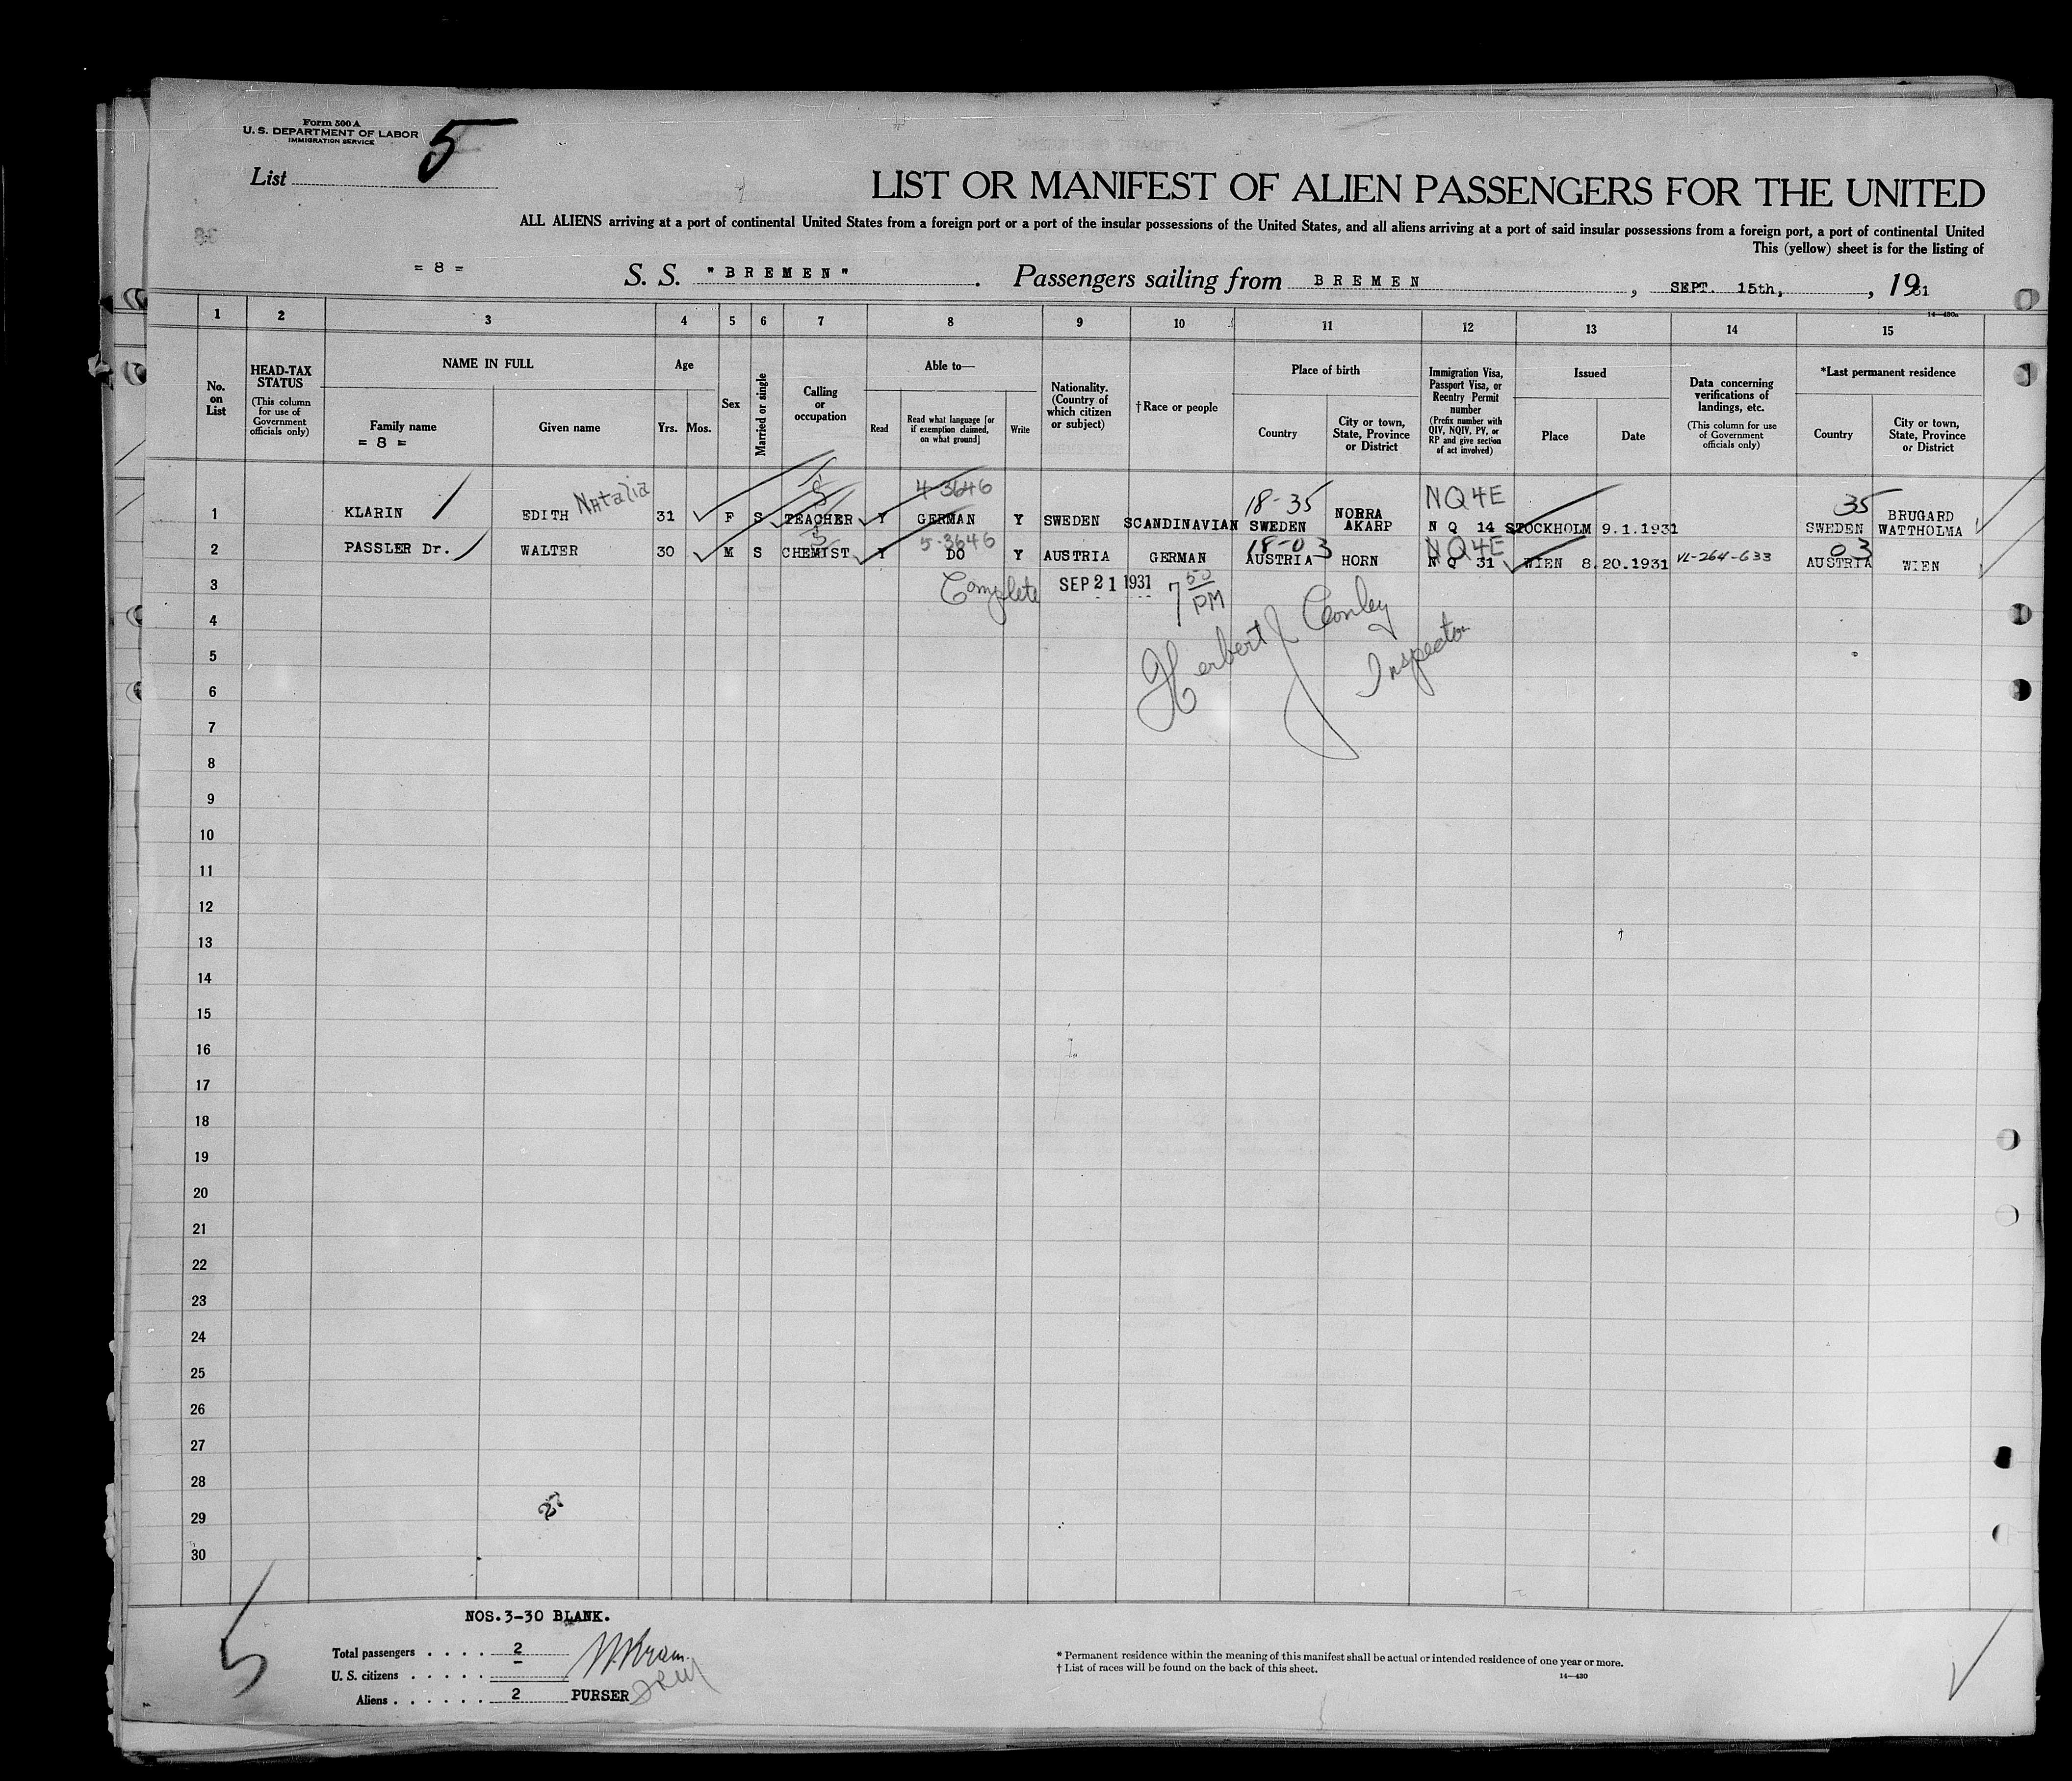 Form 500 A
U. S. DEPARTMENT OF LABOR
IMMIGRATION SERVICE
List 5
LIST OR MANIFEST OF ALIEN PASSENGERS FOR THE UNITED
ALL ALIENS arriving at a port of continental United States from a foreign port or a port of the insular possessions of the United States, and all aliens arriving at a port of said insular possessions from a foreign port, a port of continental United
This (yellow) sheet is for the listing of
38
= 8 = S. S. "BREMEN". Passengers sailing from BREMEN, SEPT. 15th, , 1931
14—430a
1 2 3 4 5 6 7 8 9 10 11 12 13 14 15
No. on List
HEAD-TAX STATUS (This column for use of Government officials only)
NAME IN FULL
Family name
= 8 =
Given name
Age
Yrs. Mos.
Sex
Married or single
Calling or occupation
Able to—
Read
Read what language [or if exemption claimed, on what ground]
Write
Nationality. (Country of which citizen or subject)
†Race or people
Place of birth
Country
City or town, State, Province or District
Immigration Visa, Passport Visa, or Reentry Permit number (Prefix number with QIV, NQIV, PV, or RP and give section of act involved)
Issued
Place
Date
Data concerning verifications of landings, etc. (This column for use of Government officials only)
*Last permanent residence
Country
City or town, State, Province or District
Natalia 5 4-3646 18-35 NQ4E 35
1 KLARIN EDITH 31 F S TEACHER Y GERMAN Y SWEDEN SCANDINAVIAN SWEDEN NORRA AKARP N Q 14 STOCKHOLM 9.1.1931 SWEDEN BRUGARD WATTHOLMA
5 5-3646 18-03 NQ4E 03
2 PASSLER Dr. WALTER 30 M S CHEMIST Y DO Y AUSTRIA GERMAN AUSTRIA HORN N Q 31 WIEN 8.20.1931 VL-264-633 AUSTRIA WIEN
3 Complete SEP 21 1931 7 50 PM
4
Herbert J Conley
5
Inspector
6
7
8
9
10
11
12
13
14
15
16
17
18
19
20
21
22
23
24
25
26
27
28
29
27
30
5
NOS.3-30 BLANK.
Total passengers . . . . 2
U. S. citizens . . . . . –
Aliens . . . . . . 2 PURSER
* Permanent residence within the meaning of this manifest shall be actual or intended residence of one year or more.
† List of races will be found on the back of this sheet.
14—430